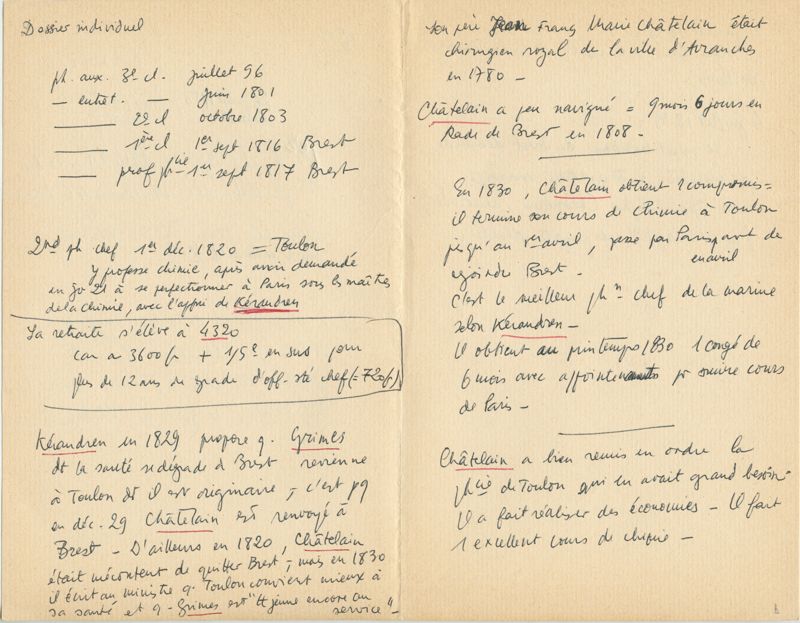 Dossier individuel
ph. aux. 3e cl. juillet 96
— entret. — juin 1801
—— 2e cl octobre 1803
—— 1ère cl 1er sept 1816 Brest
—— prof phcie 1er sept 1817 Brest
2nd ph chef 1er déc. 1820 = Toulon
y professe chimie, après avoir demandé
en 21 à se perfectionner à Paris sous les maîtres
de la chimie, avec l'appui de Kérandren
Sa retraite s'élève à 4320
car a 3600 fr + 1/5e en sus pour
plus de 12 ans de grade d'off. sté chef (= 720 fr)
Kérandren en 1829 propose q. Grimes
dt la santé se dégrade à Brest revienne
à Toulon dt il est originaire, - c'est pq
en déc. 29 Châtelain est renvoyé à
Brest - D'ailleurs en 1820, Châtelain
était mécontent de quitter Brest, - mais en 1830
il écrit au ministre q. Toulon convient mieux à
sa santé et q. Grimes est "H jeune encore au
service" -
son père Jean Franç Marie Châtelain était
chirurgien royal de la ville d'Avranches
en 1780 -
Châtelain a peu navigué = 9 mois 6 jours en
Rade de Brest en 1808 -
En 1830, Châtelain obtient 1 compromis =
il termine son cours de chimie à Toulon
jusqu'au 1er avril, passe par Paris avant de
en avril
rejoindre Brest -
C'est le meilleur phn chef de la marine
selon Kérandren -
Il obtient au printemps 1830 1 congé de
6 mois avec appointements pr suivre cours
de Paris -
Châtelain a bien remis en ordre la
phcie de Toulon qui en avait grand besoin -
Il a fait réaliser des économies - Il fait
1 excellent cours de chimie -